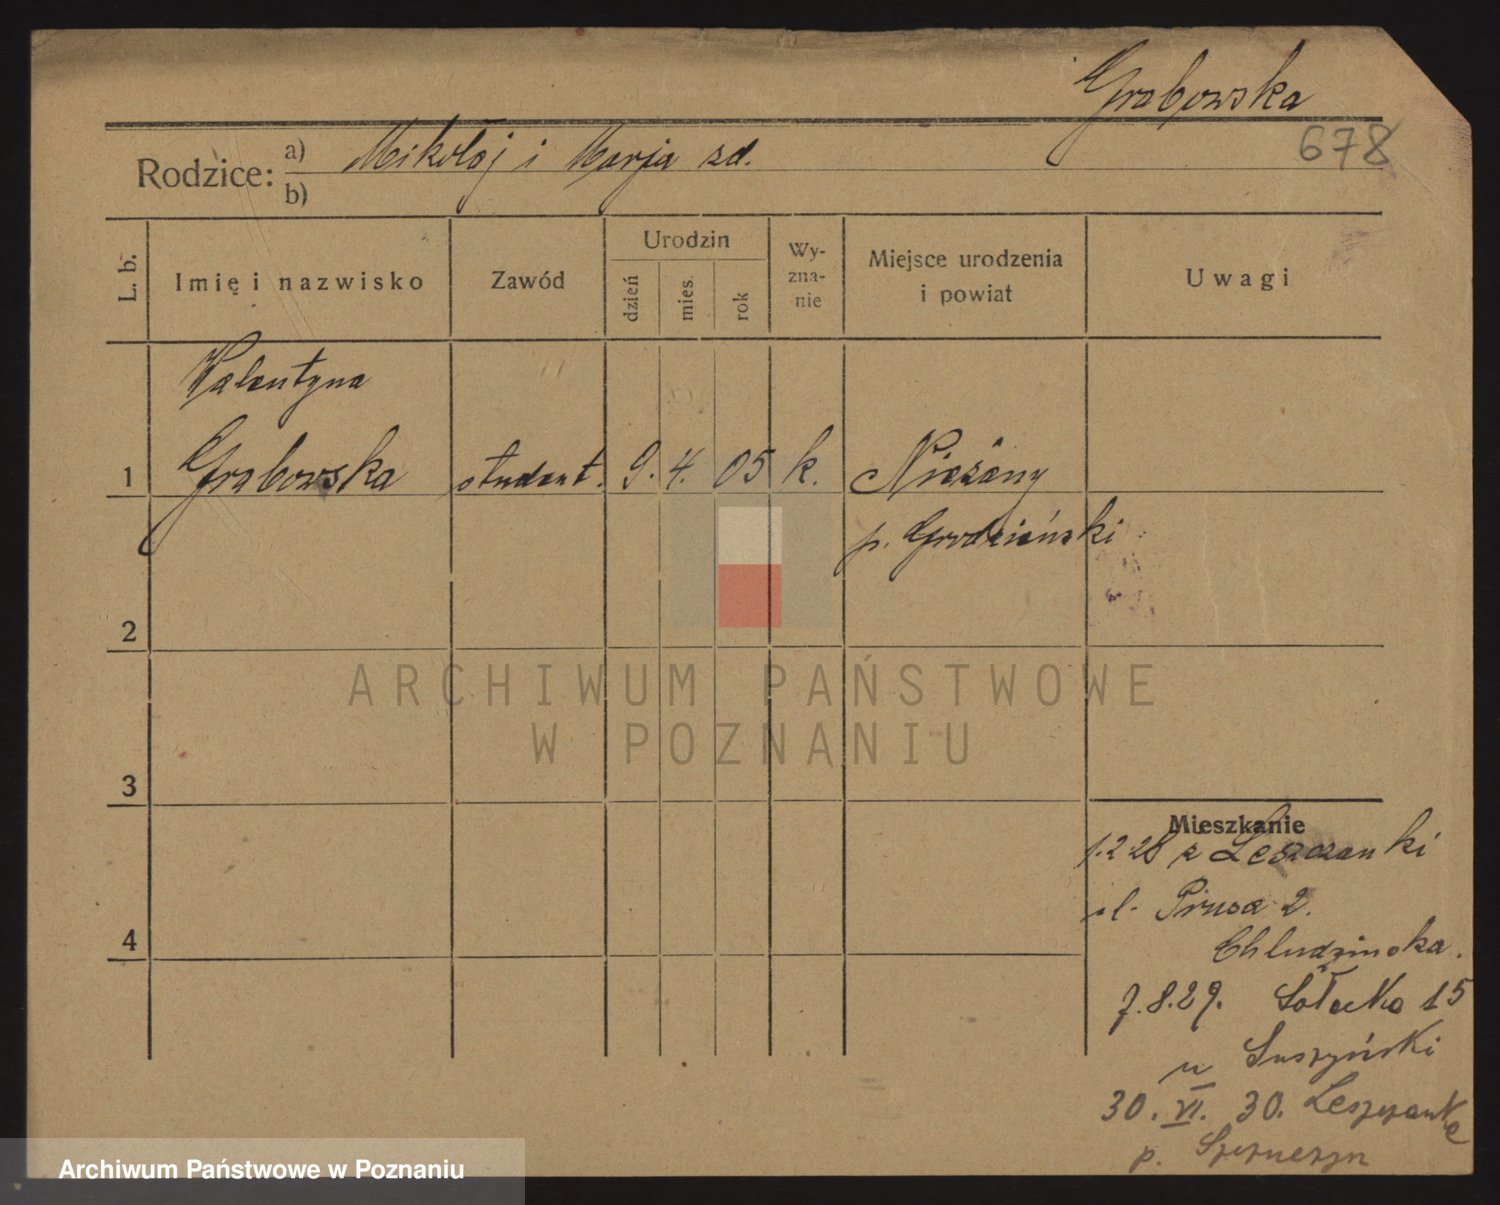 Grabowska
678
Rodzice: a) Mikołaj i Marja zd.
b)
L. b.
Imię i nazwisko
Zawód
Urodzin
dzień
mies.
rok
Wy-
zna-
nie
Miejsce urodzenia
i powiat
Uwagi
Walentyna
1 Grabowska student. 9. 4. 05 k.
p. Grodzieński
2
3
4
ARCHIWUM PAŃSTWOWE
W POZNANIU
Mieszkanie
1.2.28 z Leszczanki
ul. Prusa 2.
Chludzinska.
7.8.29. Sołacka 15
u Suszyński
30. VI. 30. Leszczanke
p.
Archiwum Państwowe w Poznaniu